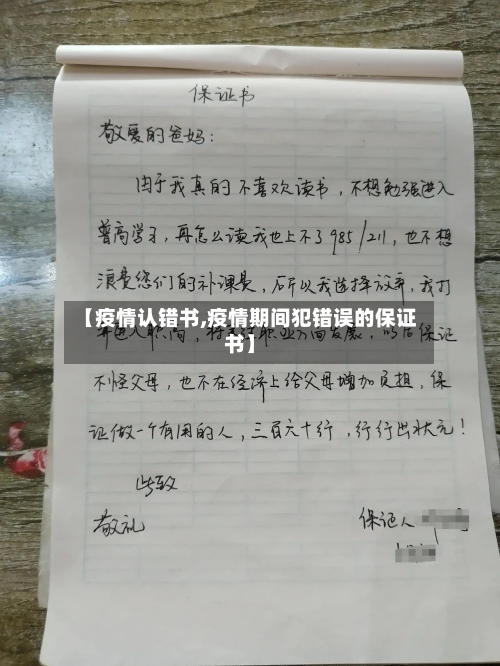 保证书
敬爱的爸妈：
由于我真的不喜欢读书，不想勉强进入
普高学习，再怎么读我也上不了985/211，也不想
浪费您们的补课费，所以我选择放弃，我打
【疫情认错书,疫情期间犯错误的保证
书】
保证
不怪父母，也不在经济上给父母增加负担，保
证做一个有用的人，三百六十行，行行出状元！
此致
敬礼
保证人